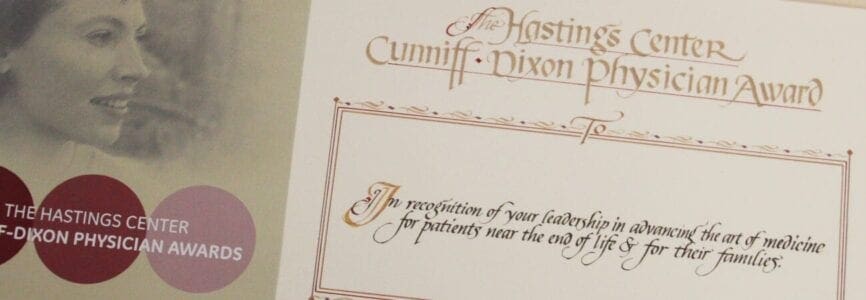 THE HASTINGS CENTER
F-DIXON PHYSICIAN AWARDS
The Hastings Center
Cunniff·Dixon Physician Award
To
In recognition of your leadership in advancing the art of medicine
for patients near the end of life & for their families.